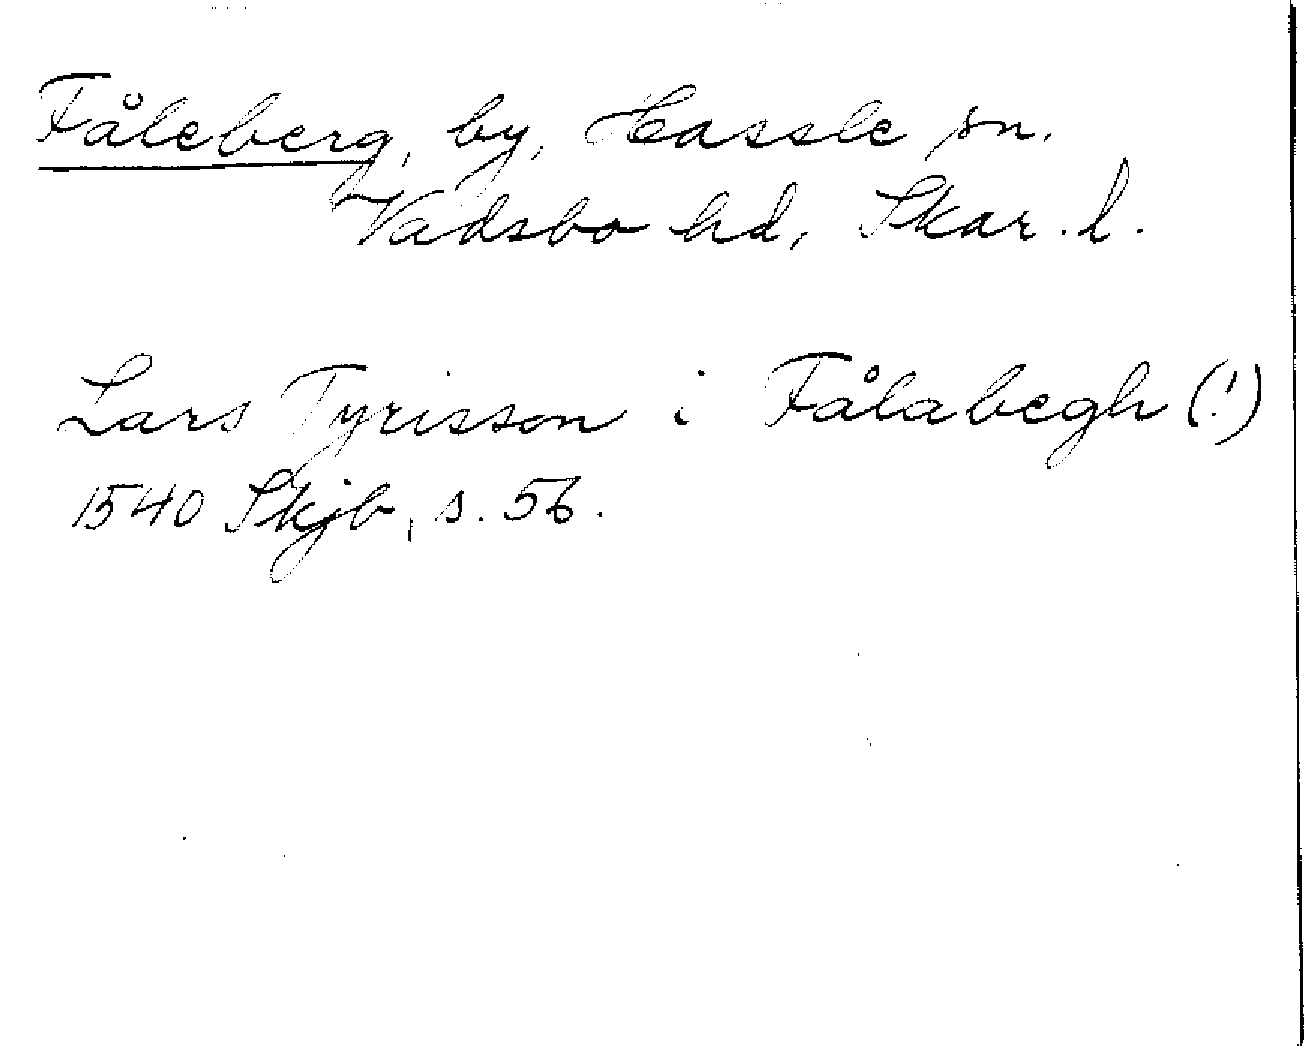 Fåleberg, by, Hassle sn.
Vadsbo hd, Skar. l.
Lars Tyrisson i Fålabegh (!)
1540 Skjb, s. 56.